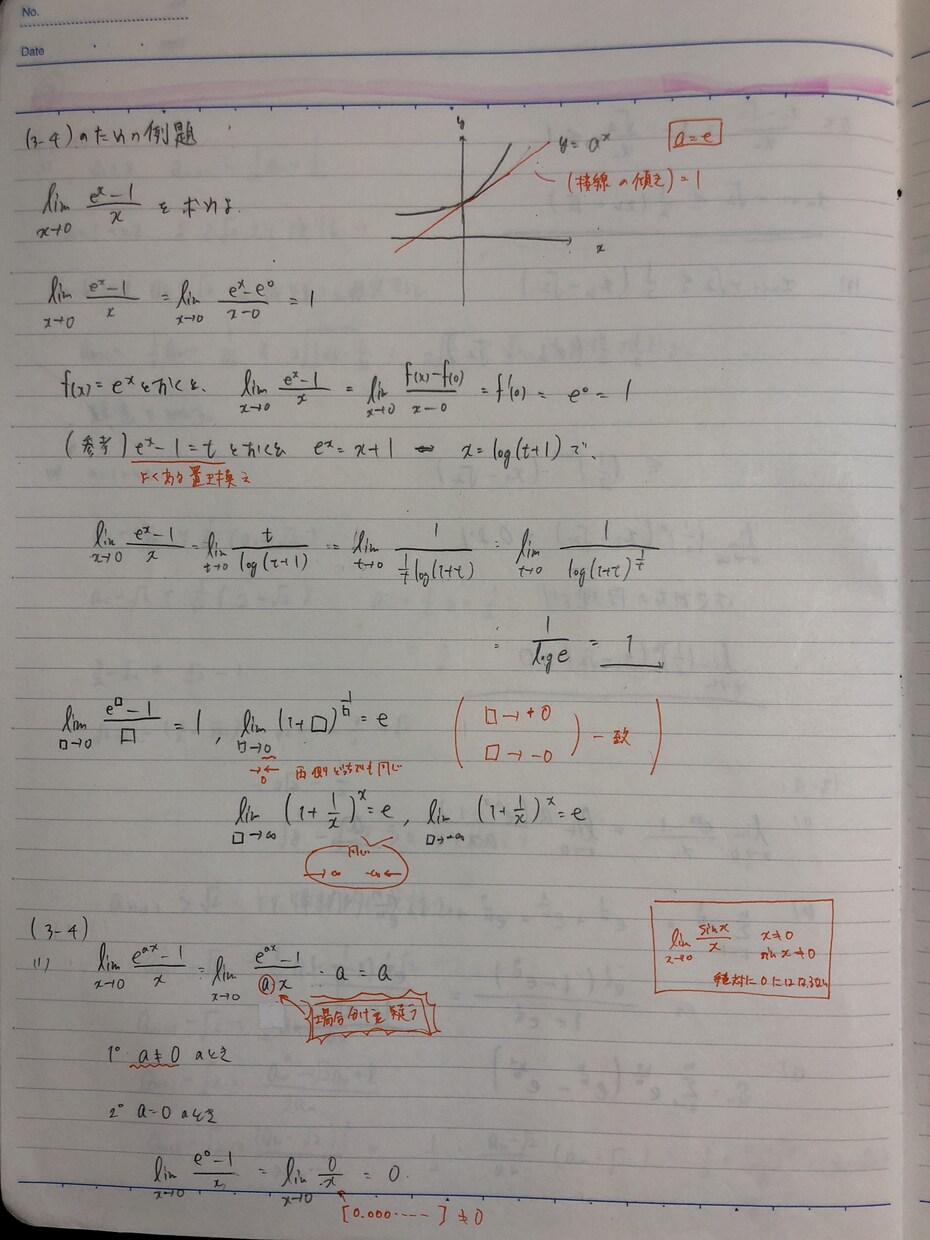 No.
Date
(3-4)のための例題
y
y = a^x
a=e
(接線の傾き) = 1
x
lim_{x→0} (e^x-1)/x を求めよ.
lim_{x→0} (e^x-1)/x = lim_{x→0} (e^x-e^0)/(x-0) = 1
f(x)=e^x とおくと、 lim_{x→0} (e^x-1)/x = lim_{x→0} (f(x)-f(0))/(x-0) = f'(0) = e^0 = 1
(参考) e^x-1=t とおくと e^x = x+1 ⇔ x=log(t+1) で、
よくある置き換え
lim_{x→0} (e^x-1)/x = lim_{t→0} t/log(t+1) = lim_{t→0} 1/((1/t)log(1+t)) = lim_{t→0} 1/log(1+t)^{1/t}
= 1/log e = 1
lim_{□→0} (e^□-1)/□ = 1 , lim_{□→0} (1+□)^{1/□} = e
( □→+0
□→-0 ) 一致
→←
0
両側どっちでも同じ
lim_{□→∞} (1+1/x)^x = e , lim_{□→-∞} (1+1/x)^x = e
同じ
→∞ -∞←
(3-4)
(1) lim_{x→0} (e^{ax}-1)/x = lim_{x→0} (e^{ax}-1)/(ax) ・a = a
場合分けを疑う
lim_{x→0} sin x/x x≠0
sin x≠0
絶対に0にはならない
1° a≠0 のとき
2° a=0 のとき
lim_{x→0} (e^0-1)/x = lim_{x→0} 0/x = 0.
[0.000-----] ≠0